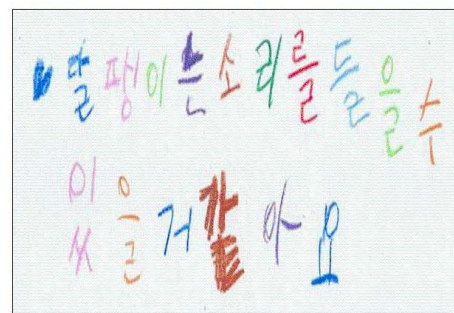 달팽이는소리를들을수
있을거같아요